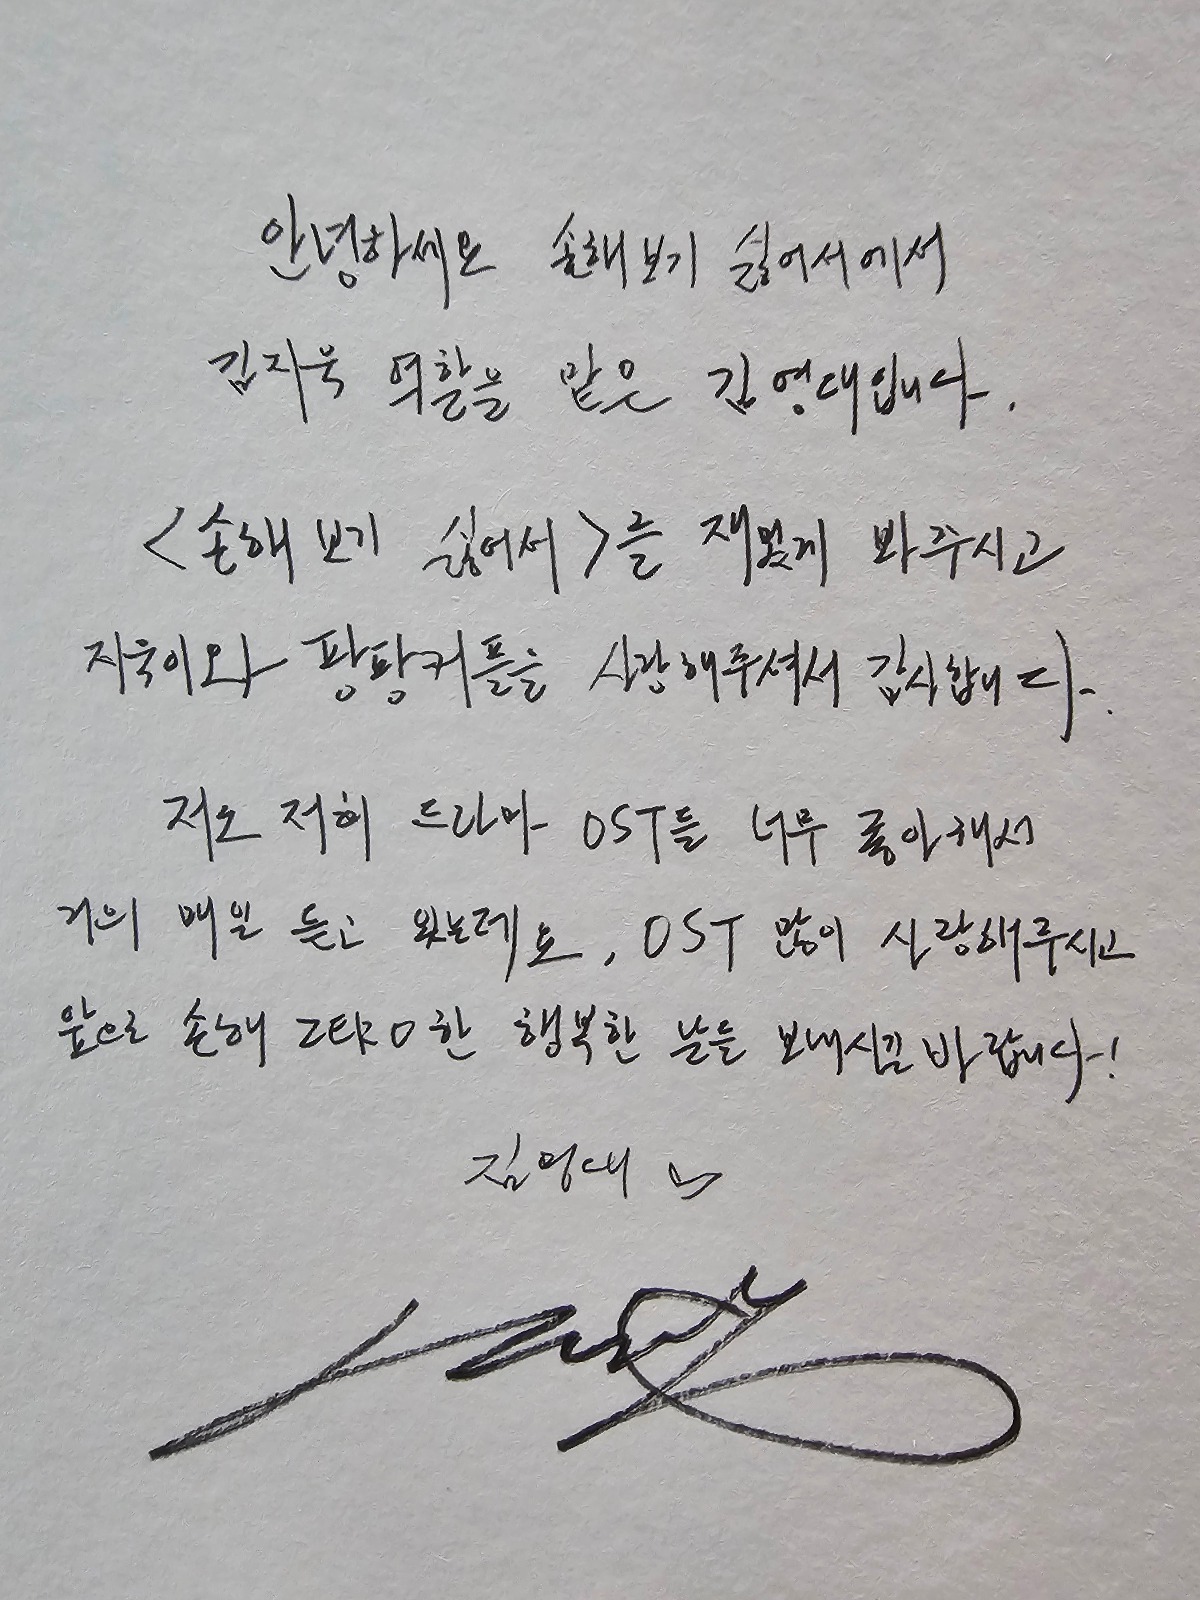 안녕하세요 손해 보기 싫어서에서
김지욱 역할을 맡은 김영대입니다.
<손해 보기 싫어서>를 재밌게 봐주시고
지욱이와 팡팡커플을 사랑해주셔서 감사합니다.
저도 저희 드라마 OST를 너무 좋아해서
거의 매일 듣고 있는데요, OST 많이 사랑해주시고
앞으로 손해 ZERO한 행복한 날들 보내시길 바랍니다!
김영대 ♡